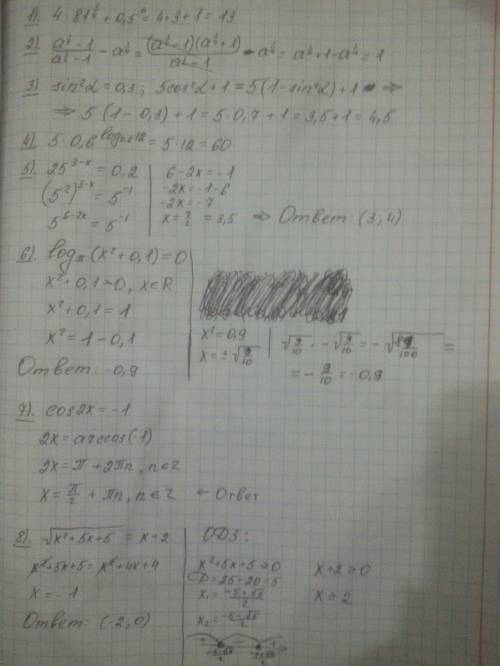 1). 4·81^(1/4) + 0,5^0 = 4·3+1 = 13
2) (a^(1/3) - 1)/(a^(1/6) - 1) - a^(1/6) = ((a^(1/6) - 1)(a^(1/6) + 1))/(a^(1/6) - 1) - a^(1/6) = a^(1/6) + 1 - a^(1/6) = 1
3) sin²α = 0,3 ; 5cos²α + 1 = 5(1 - sin²α) + 1 ⇒
⇒ 5(1 - 0,3) + 1 = 5·0,7 + 1 = 3,5 + 1 = 4,5
4). 5·0,6^(log_0,6 12) = 5·12 = 60
5) 25^(3-x) = 0,2
(5²)^(3-x) = 5^(-1)
5^(6-2x) = 5^(-1)
6 - 2x = -1
-2x = -1 - 6
-2x = -7
x = 7/2 = 3,5 ⇒ Ответ: (3; 4)
6) log_π (x² + 0,1) = 0
x² + 0,1 > 0, x∈R
x² + 0,1 = 1
x² = 1 - 0,1
Ответ: -0,9
x² = 0,9
x = ±√(9/10)
√(9/10) · -√(9/10) = -√(81/100) =
= -9/10 = -0,9
7). cos2x = -1
2x = arccos(-1)
2x = π + 2πn, n∈Z
x = π/2 + πn, n∈Z ← Ответ
8). √(x² + 5x + 5) = x + 2
x² + 5x + 5 = x² + 4x + 4
x = -1
Ответ: (-2; 0)
ОДЗ:
x² + 5x + 5 ≥ 0
D = 25 - 20 = 5
x₁ = (-5+√5)/2
x₂ = (-5-√5)/2
x + 2 ≥ 0
+ - +
(-5-√5)/2 (-5+√5)/2